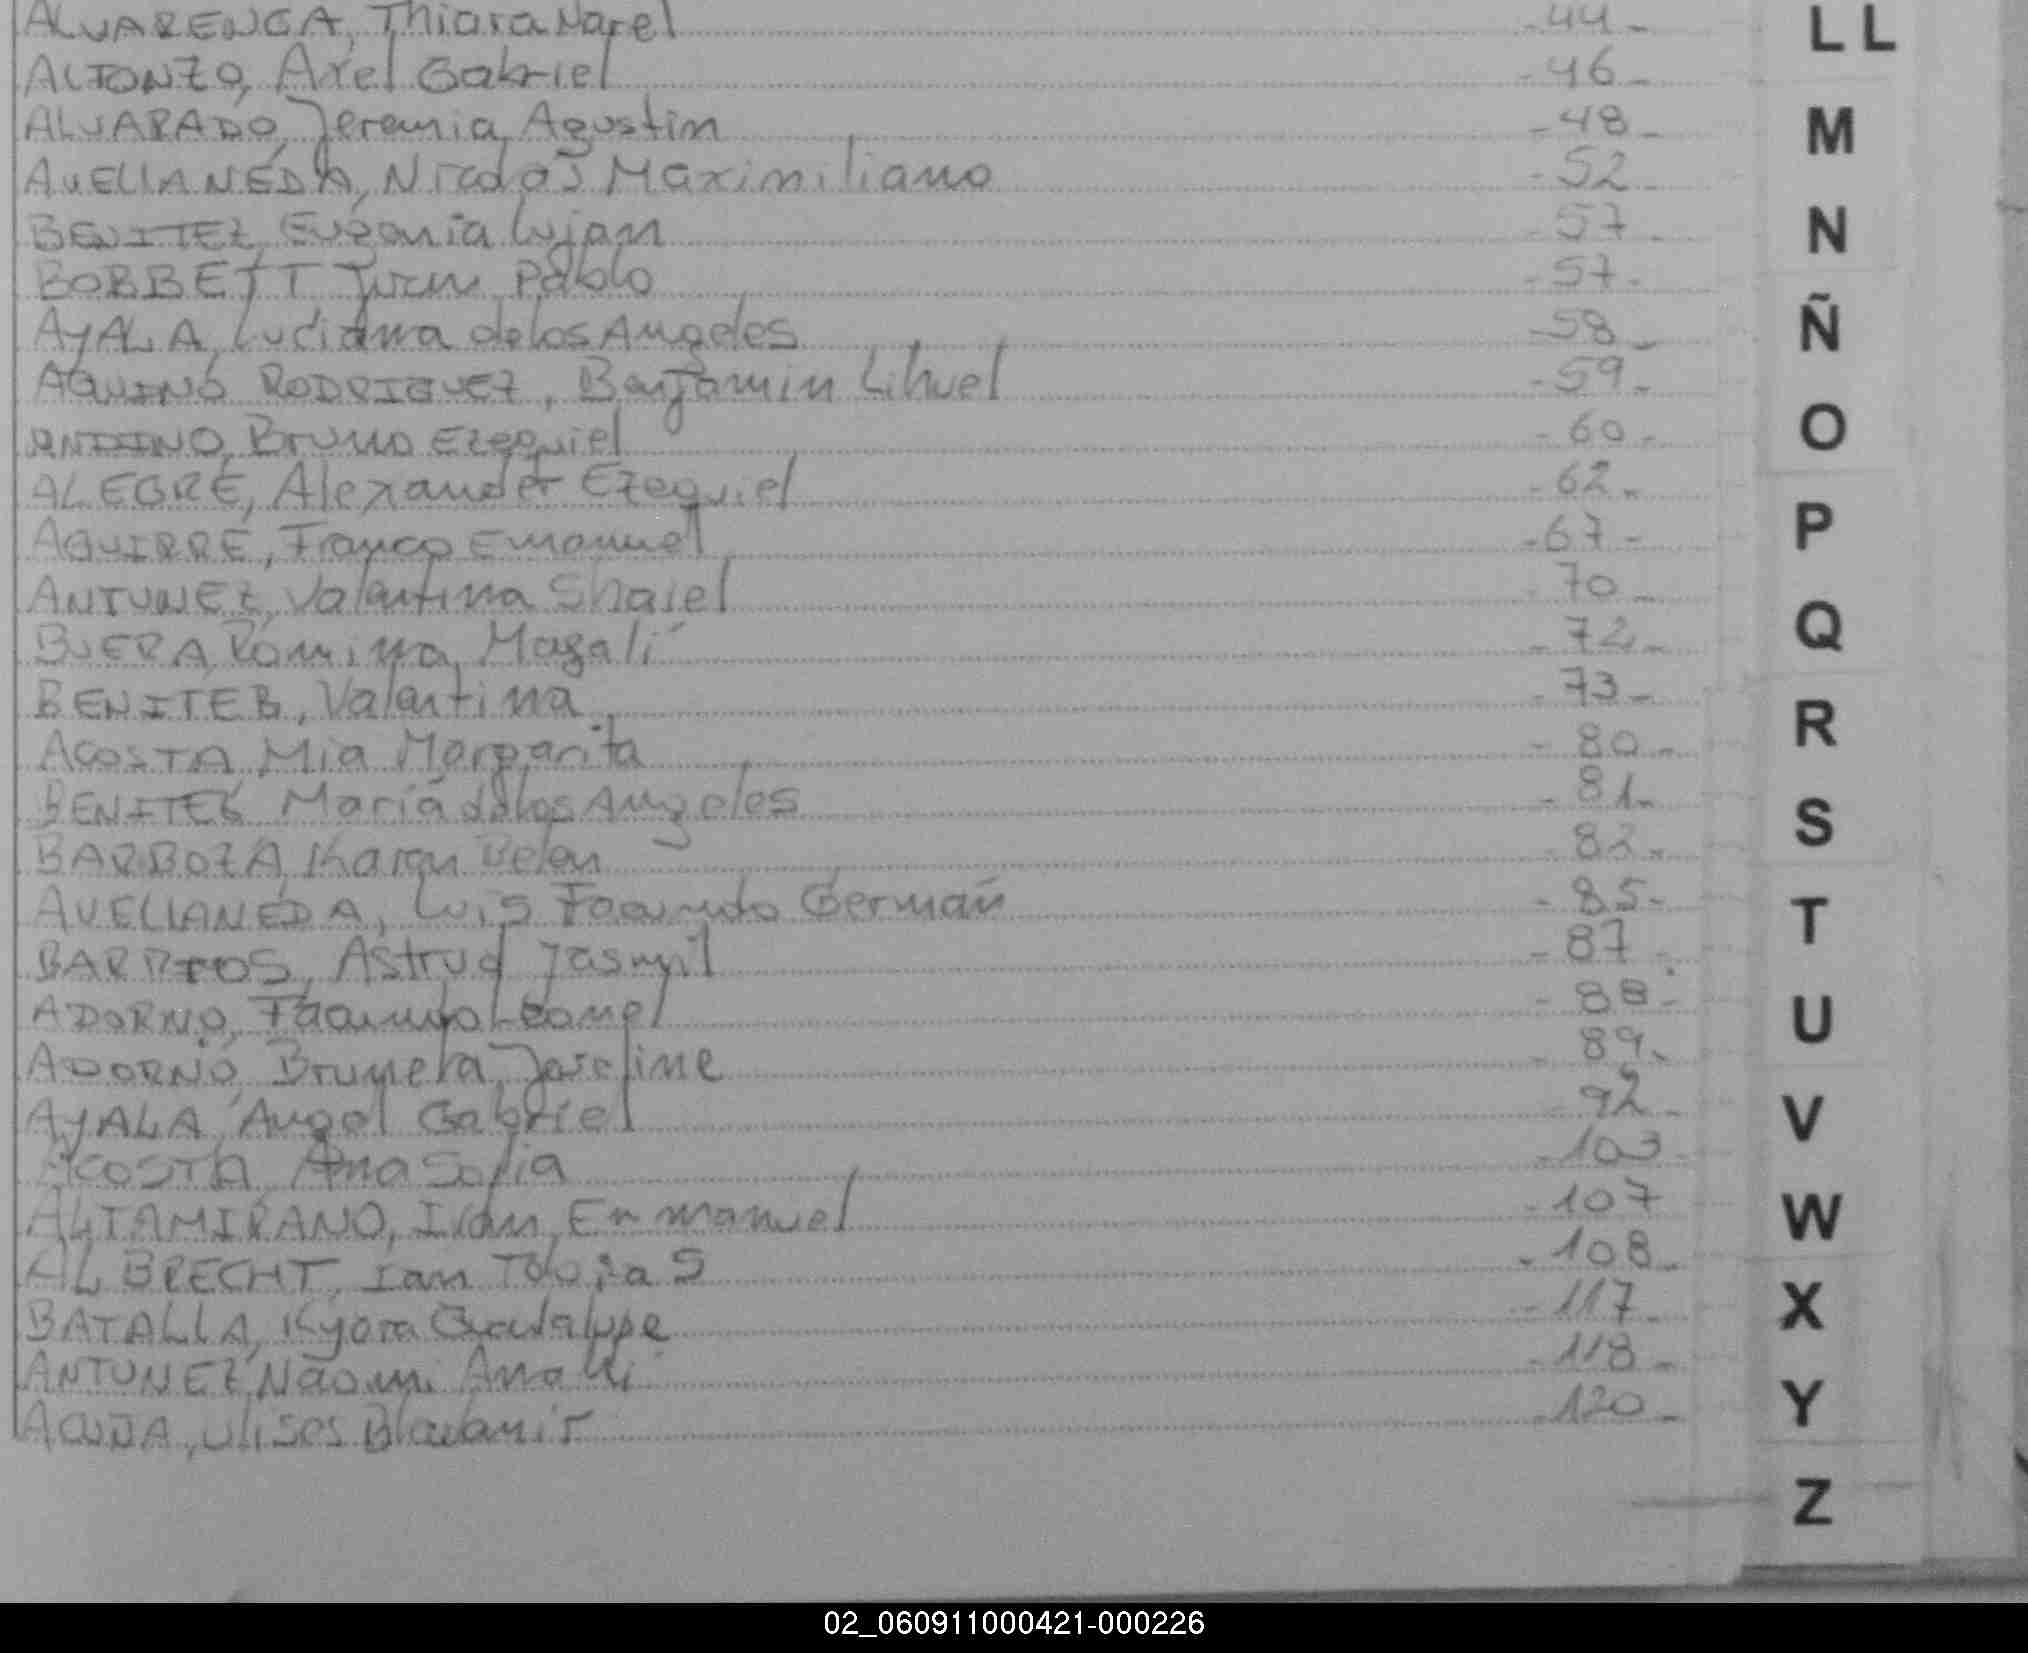 ALVARENGA, Thiara Narel -44-
ALFONZO, Axel Gabriel -46-
ALVARADO, Jeremia Agustin -48-
AVELLANEDA, Nicolás Maximiliano -52-
BENITEZ, Eugenia Lujan -57-
BOBBETT Juan Pablo -57-
AYALA, Luciana de los Angeles -58-
AQUINO RODRIGUEZ, Benjamin Lihuel -59-
ANDINO, Bruno Ezequiel -60-
ALEGRE, Alexander Ezequiel -62-
AGUIRRE, Franco Emanuel -67-
ANTUNEZ, Valentina Shaiel -70-
BUERA, Romina Magalí -72-
BENITEB, Valentina -73-
ACOSTA, Mia Margarita -80-
BENITEB María de los Angeles -81-
BARBOZA, Karen Belen -83-
AVELLANEDA, Luis Facundo Germán -85-
BARRIOS, Astrud Jasmil -87-
ADORNO, Facundo Leonel -88-
ADORNO, Brunela Joseline -89-
AYALA, Angel Gabriel -92-
ACOSTA, Ana Sofia -103-
ALTAMIRANO, Ivan, Enmanuel -107
ALBRECHT, Ian Tobias -108-
BATALLA, Kyara Guadalupe -117-
ANTUNEZ, Naomi Anali -118-
ACUÑA, Ulises -120-
LL
M
N
Ñ
O
P
Q
R
S
T
U
V
W
X
Y
Z
02_060911000421-000226